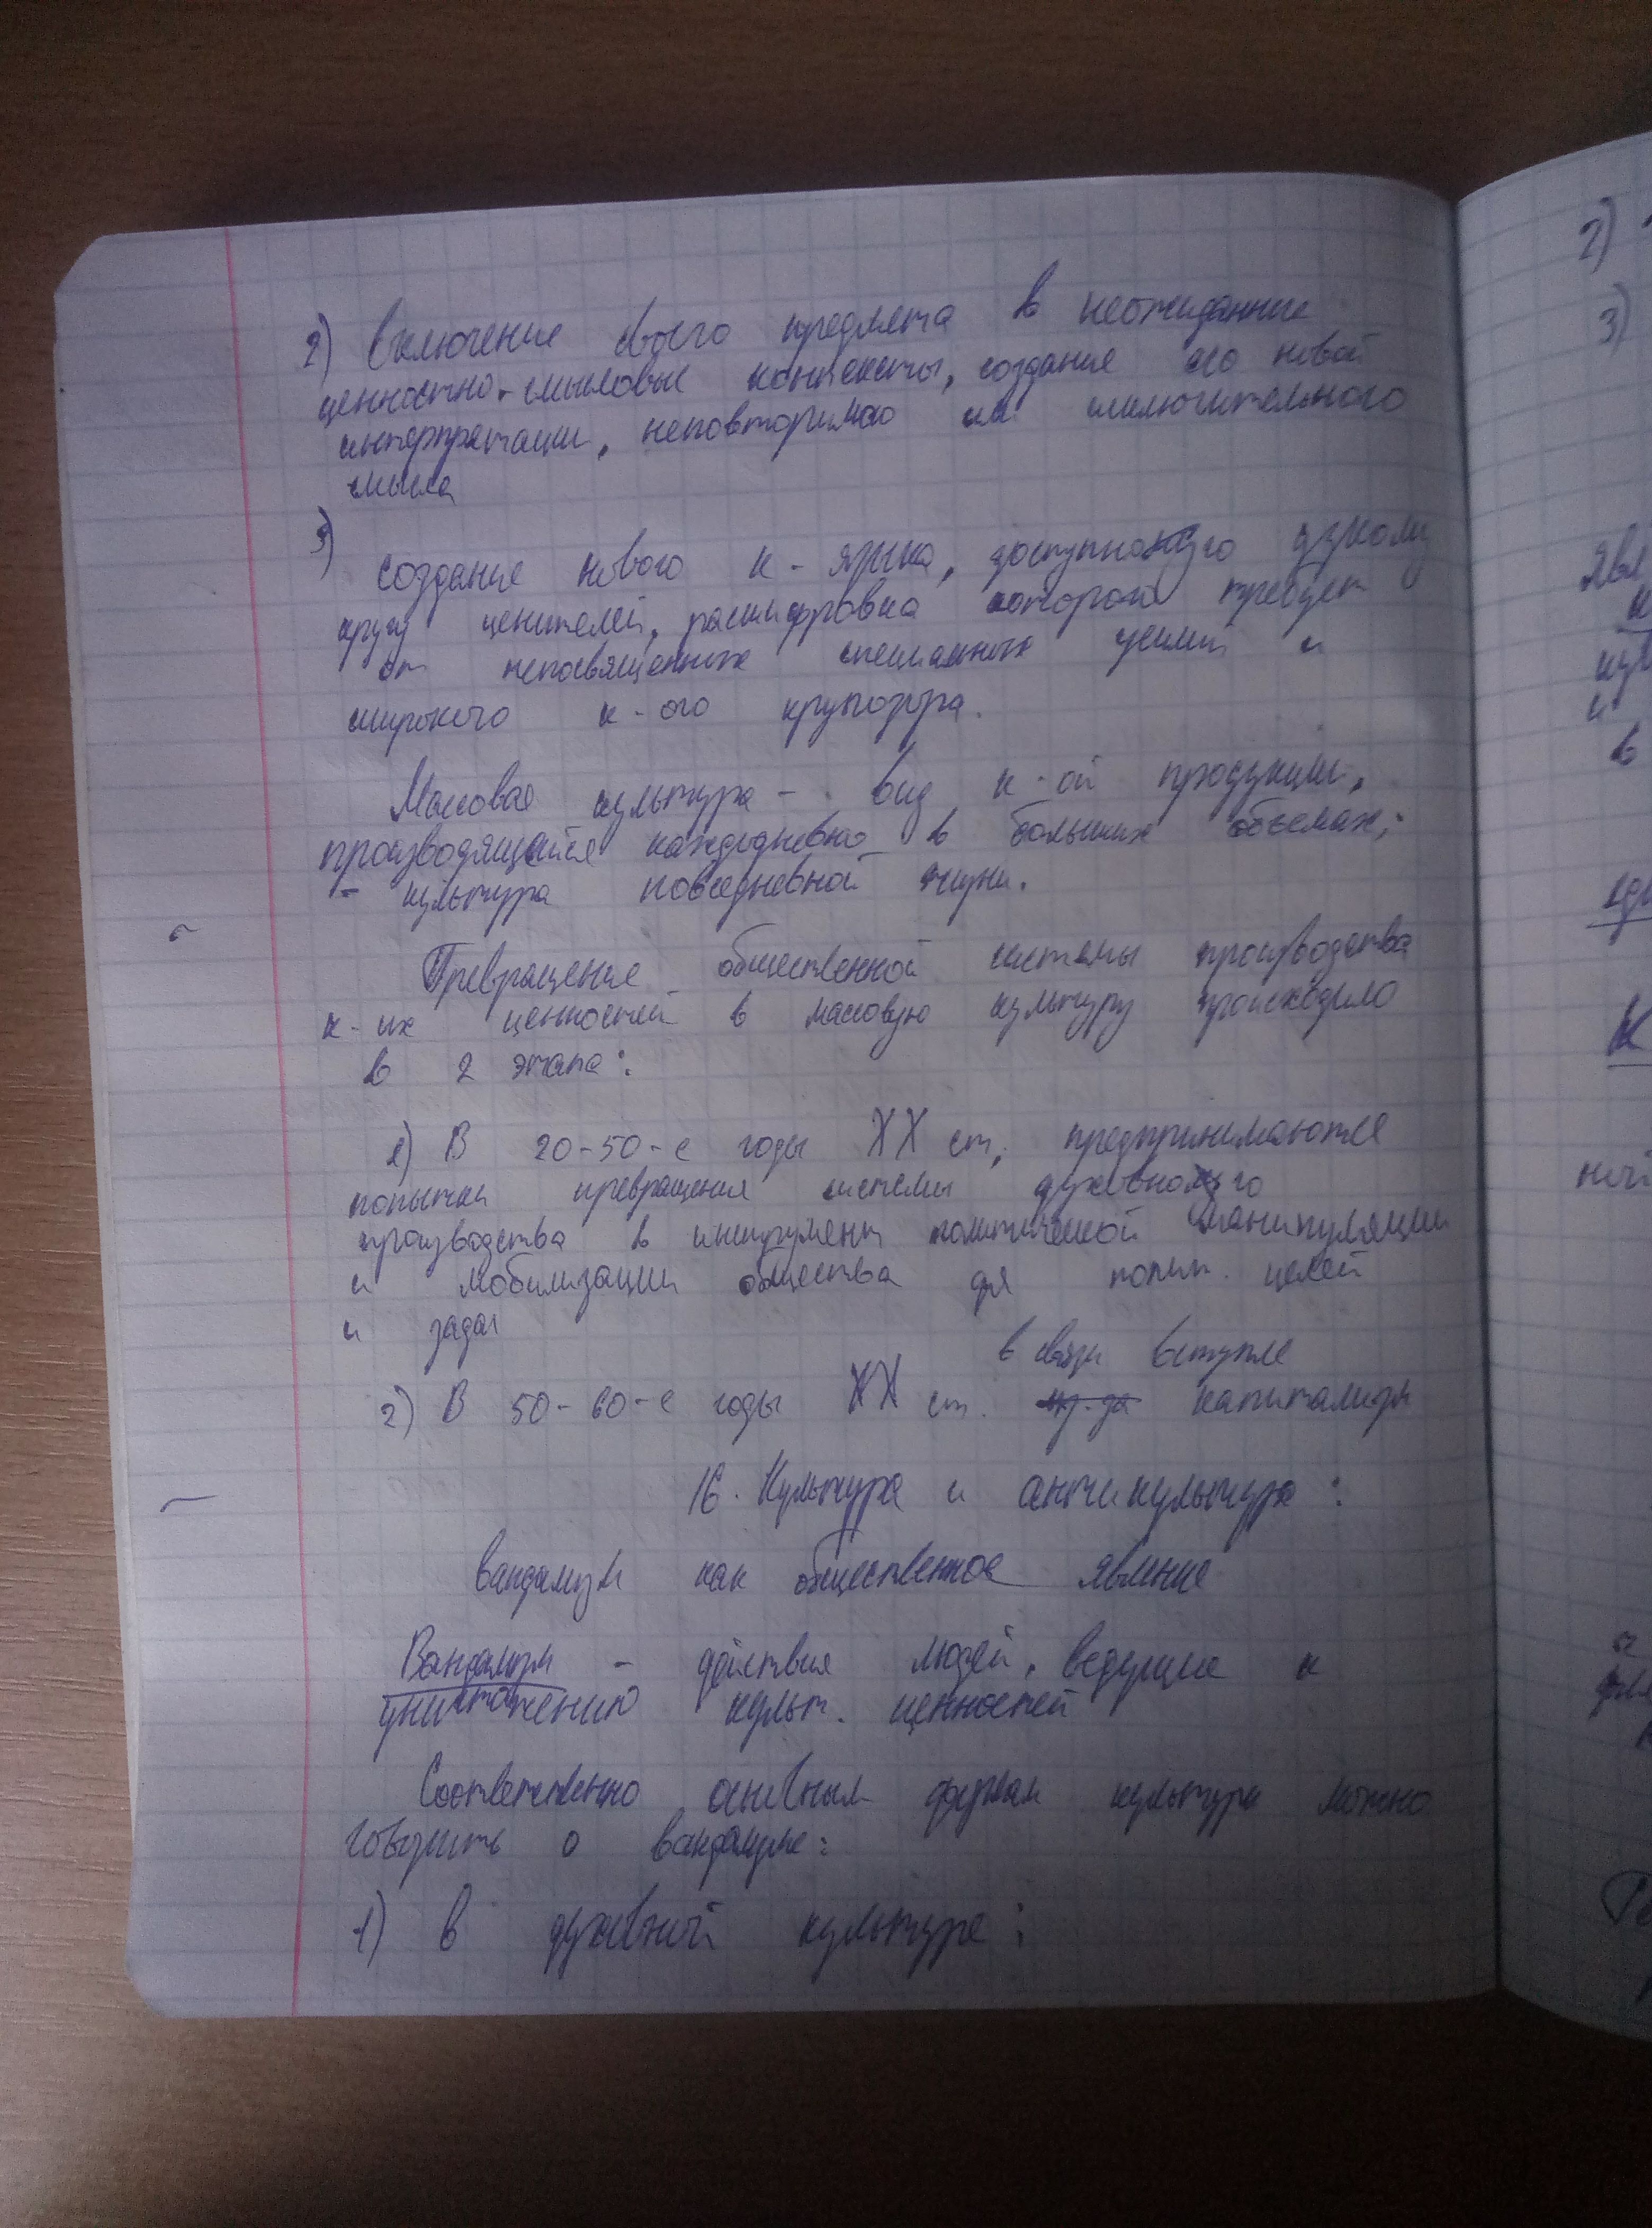 2) Включение своего предмета в неожиданные
ценностно-смысловые контексты, создание его новой
интерпретации, неповторимого или исключительного
смысла
3)
создание нового к-языка, доступного узкому
кругу ценителей, расшифровка которой требует
от непосвященных специальных усилий и
широкого к-ого кругозора.
Массовая культура - вид к-ой продукции,
производящейся каждодневно в больших объемах;
- культура повседневной жизни.
Превращение общественной системы производства
к-их ценностей в массовую культуру происходило
в 2 этапа:
1) В 20-50-е годы XX ст, предпринимаются
попытки превращения системы духовного
производства в инструмент политической манипуляции
и мобилизации общества для полит. целей
и задач
в связи вступле
2) В 50-60-е годы XX ст. капитализм
16. Культура и антикультура:
вандализм как общественное явление
Вандализм - действия людей, ведущие к
уничтожению культ. ценностей
Соответственно основным формам культуры можно
говорить о вандализме:
1) в духовной культуре:
2)
3)